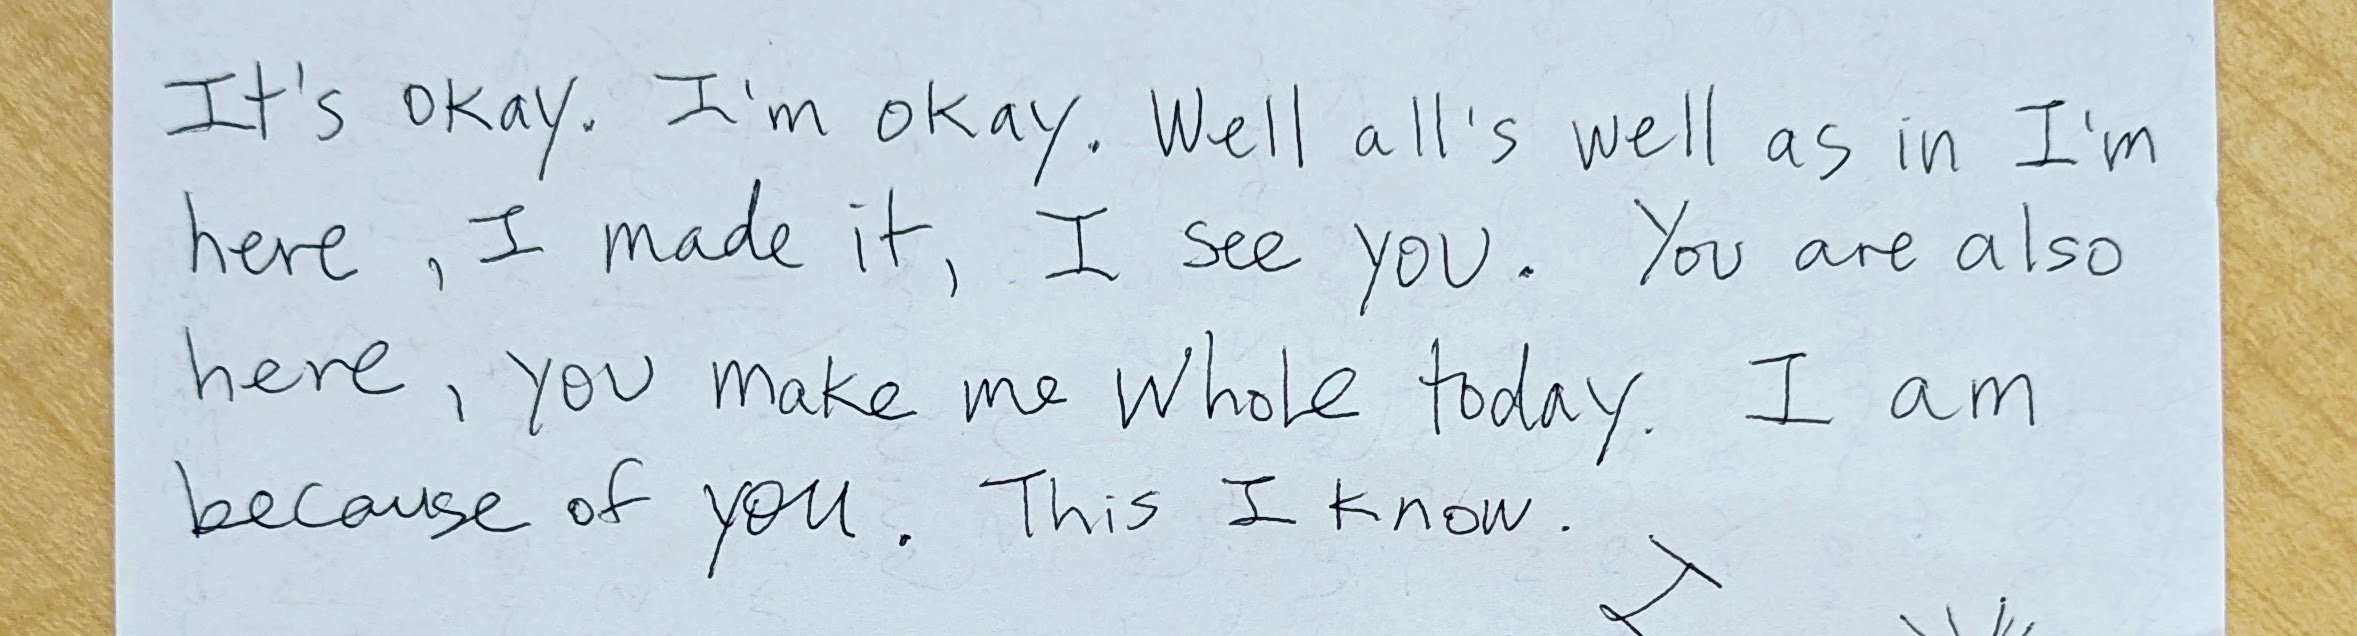 It's okay. I'm okay. Well all's well as in I'm
here, I made it, I see you. You are also
here, you make me whole today. I am
because of you. This I know.